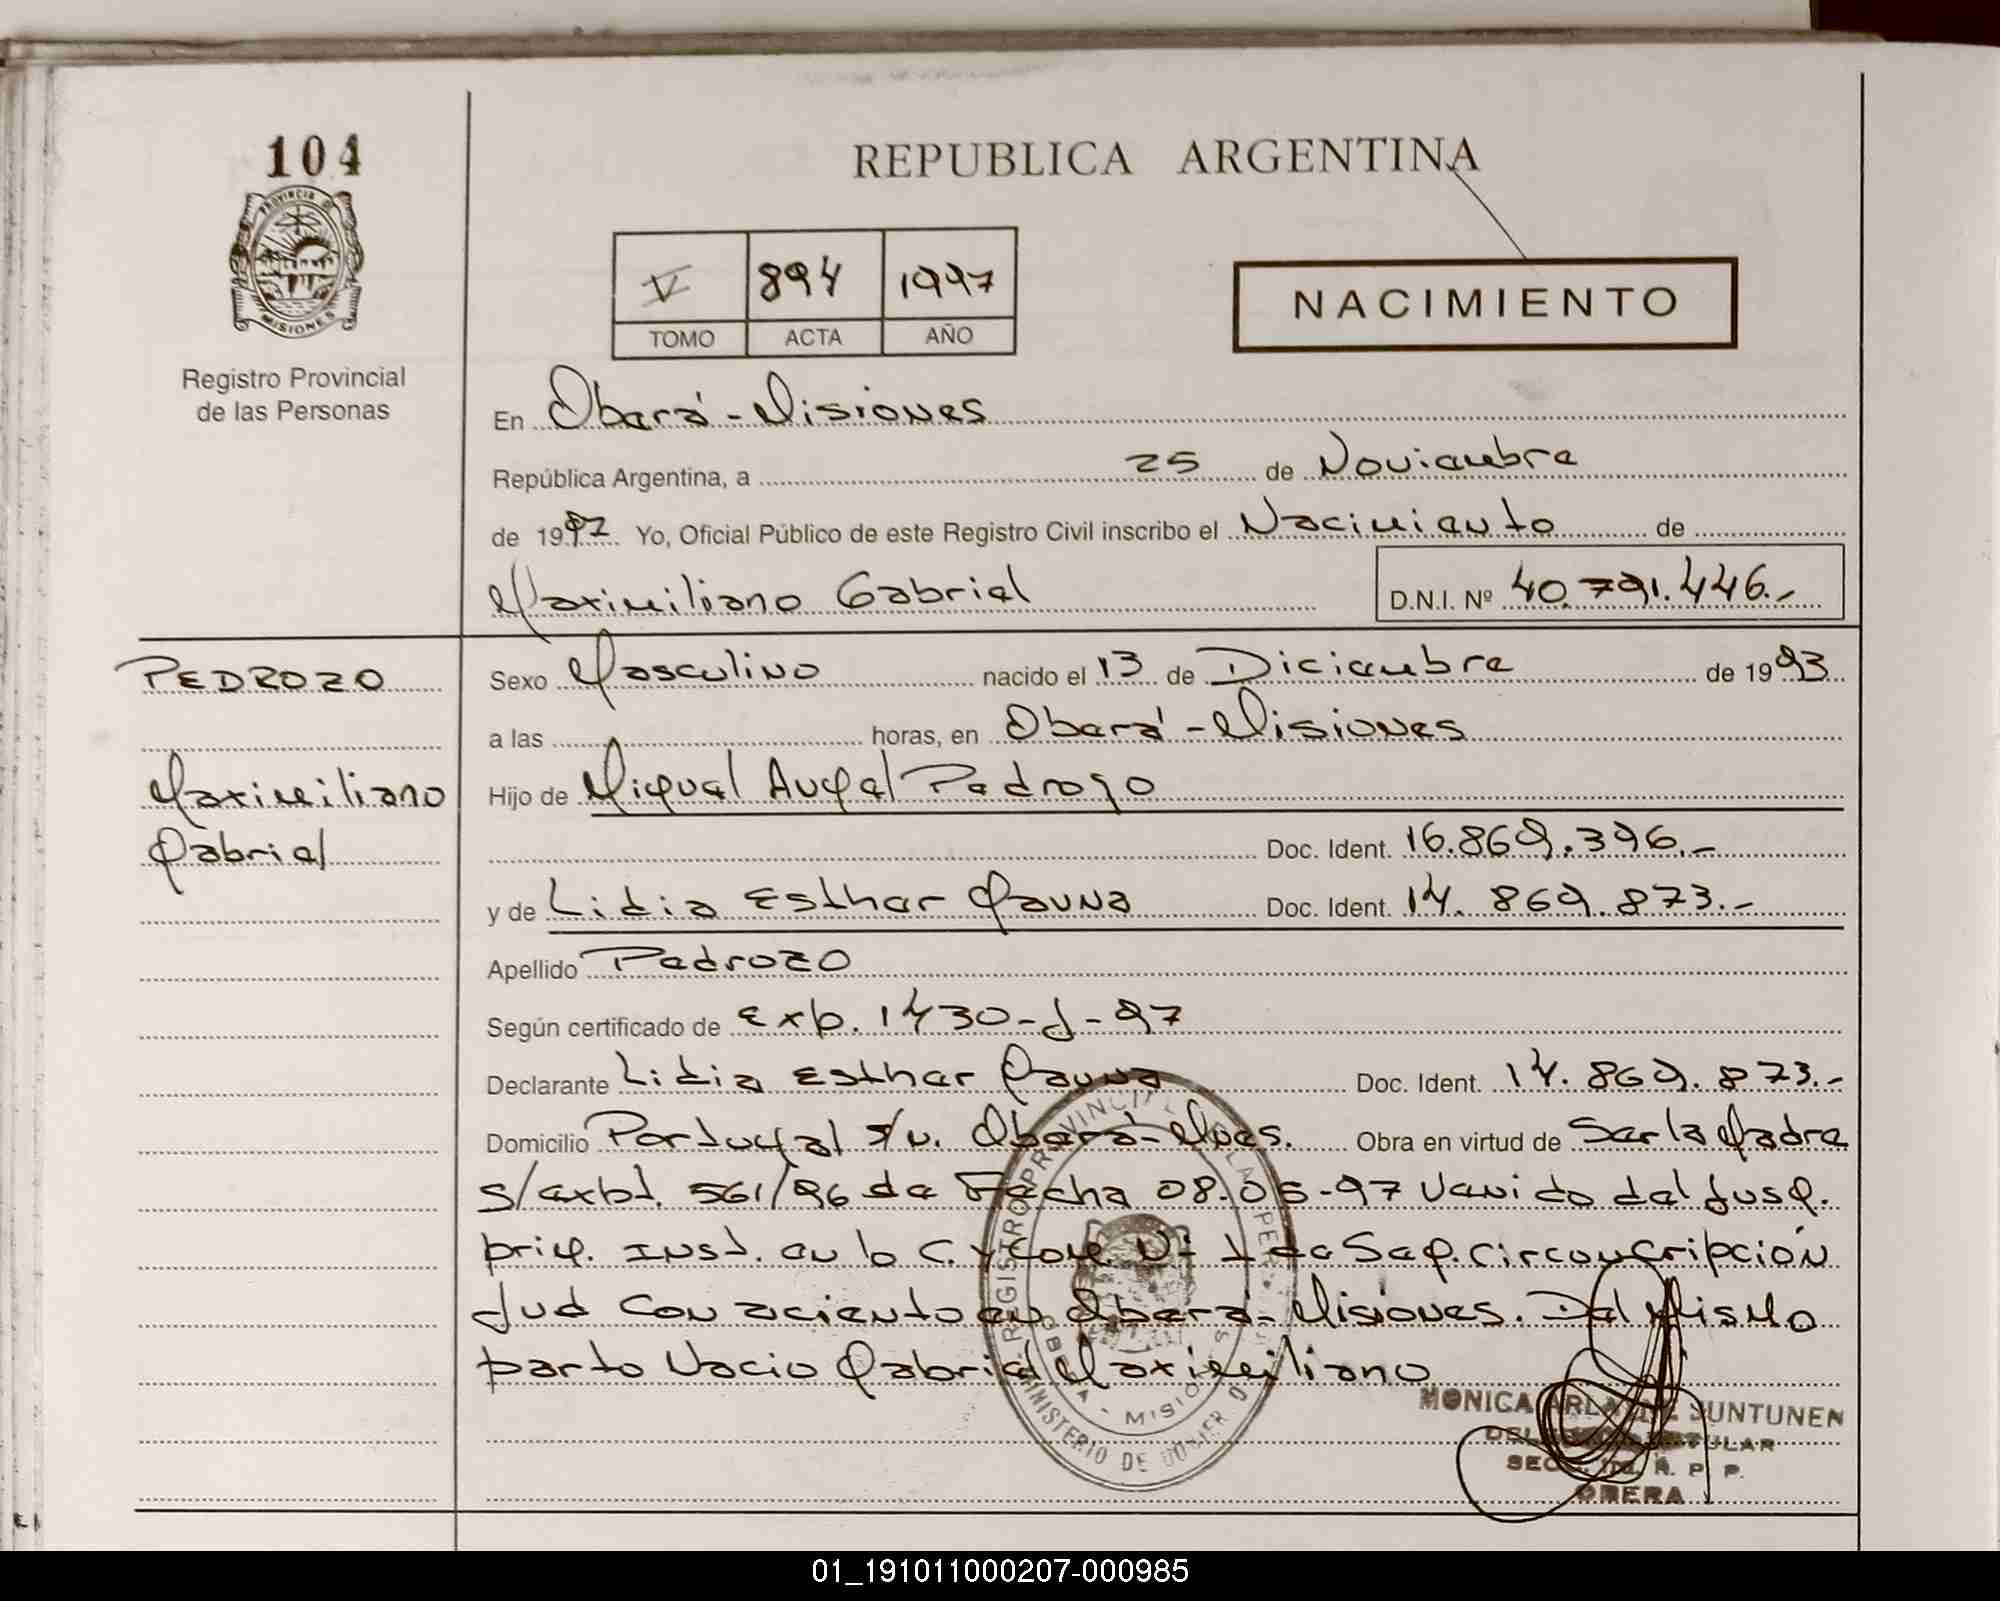 104
REPUBLICA ARGENTINA
PROVINCIA DE MISIONES
V 894 1997
TOMO ACTA AÑO
NACIMIENTO
Registro Provincial
de las Personas
En Oberá - Misiones
República Argentina, a 25 de Noviembre
de 1997 Yo, Oficial Público de este Registro Civil inscribo el Nacimiento de
Maximiliano Gabriel D.N.I. Nº 40.791.446.-
PEDROZO
Maximiliano
Gabriel
Sexo Masculino nacido el 13 de Diciembre de 1993
a las horas, en Oberá - Misiones
Hijo de Miguel Angel Pedrozo
Doc. Ident. 16.869.396.-
y de Lidia Esther Gauna Doc. Ident. 14.869.873.-
Apellido Pedrozo
Según certificado de Exp. 1430-J-97
Declarante Lidia Esther Gauna Doc. Ident. 14.869.873.-
Domicilio Portugal s/n. Oberá - Mnes. Obra en virtud de Ser la Madre
s/expt. 561/96 de Fecha 08-05-97 Venido del Jusg.
prim. Inst. en lo C. y Com. Nº 1 de Seg. Circonscripción
Jud con aciento en Oberá - Misiones. Del Mismo
parto Nacio Gabriel Maximiliano
REGISTRO PROVINCIAL DE LAS PER
OBERA - MISIONES
MINISTERIO DE GOBIERNO
MONICA ARLA DE SUNTUNEN
TITULAR
R. P. P.
OBERA
01_191011000207-000985